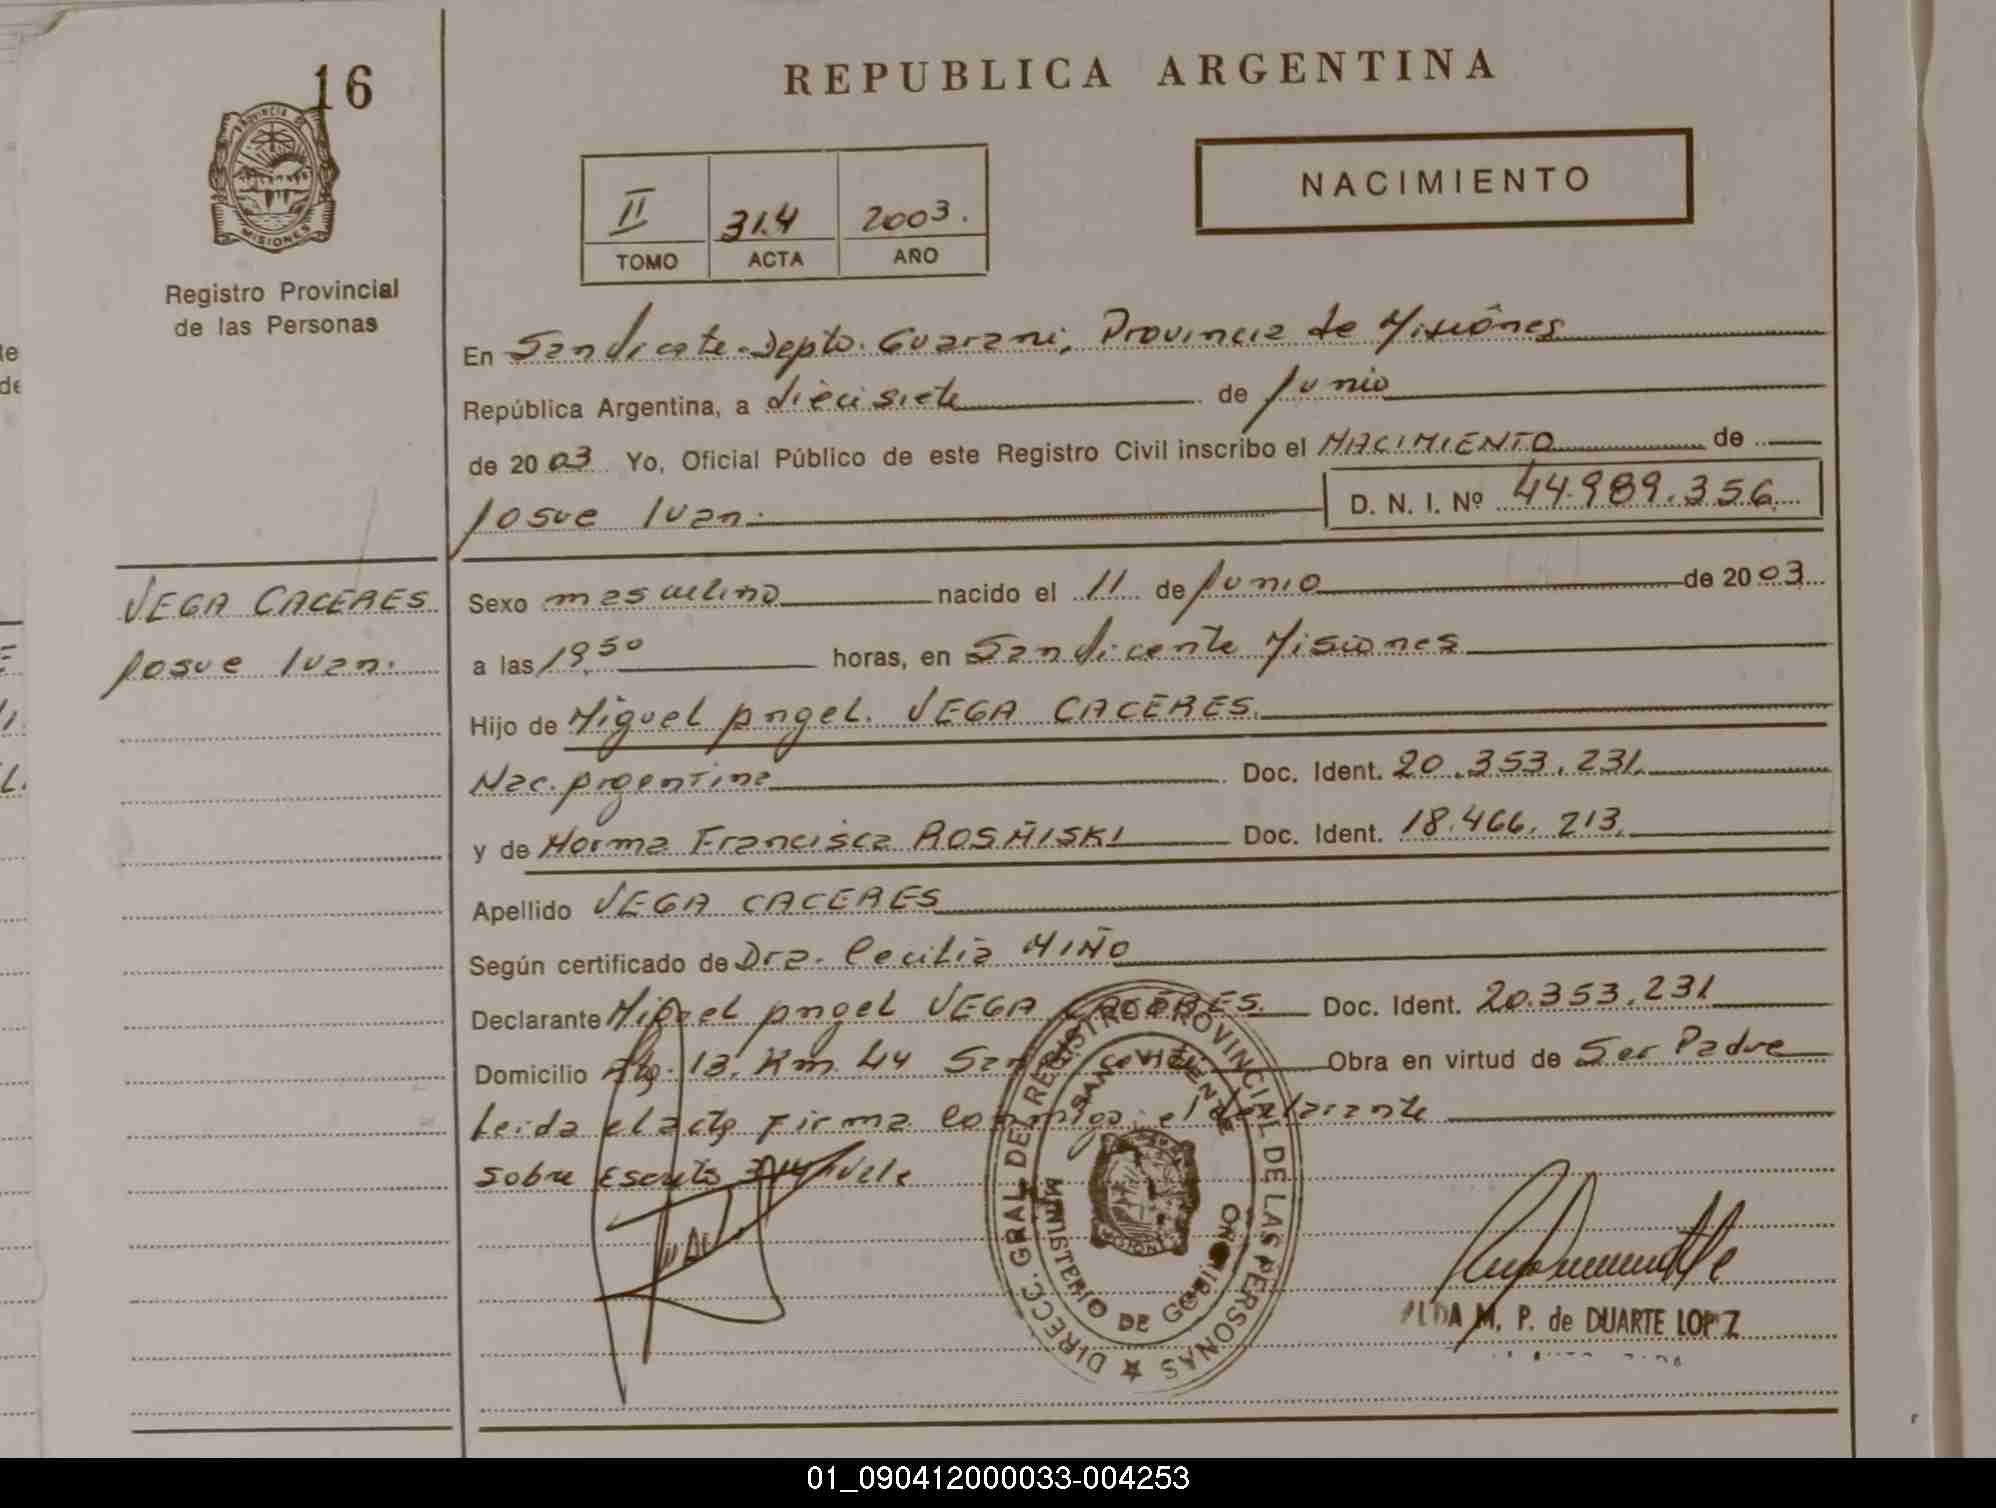 16
PROVINCIA DE
MISIONES
Registro Provincial
de las Personas
REPUBLICA ARGENTINA
NACIMIENTO
II 314 2003.
TOMO ACTA AÑO
En San Vicente - Depto. Guarani, Provincia de Misiones
República Argentina, a diecisiete de Junio
de 2003 Yo, Oficial Público de este Registro Civil inscribo el NACIMIENTO de
Josue Ivan. D. N. I. Nº 44.989.356
VEGA CACERES
Josue Ivan.
Sexo masculino nacido el 11 de Junio de 2003
a las 19 50 horas, en San Vicente Misiones
Hijo de Miguel Angel. VEGA CACERES.
Nac. Argentina Doc. Ident. 20.353.231.
y de Norma Francisca ROSÑISKI Doc. Ident. 18.466.213
Apellido VEGA CACERES
Según certificado de Dra. Cecilia MIÑO
Declarante Miguel Angel VEGA CACERES. Doc. Ident. 20.353.231
Domicilio 13. Km. 44 San Vicente Obra en virtud de Ser Padre
Leida el acta Firma Conmigo el declarante
Sobre Escrito 314 Vale
DIRECC. GRAL DEL REGISTRO PROVINCIAL DE LAS PERSONAS
SAN VICENTE
MINISTERIO DE GOBIERNO
M. P. de DUARTE LOPEZ
01_090412000033-004253